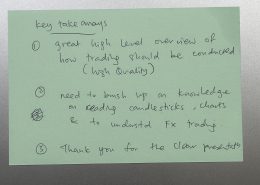 Key take aways
① great high level overview of
how trading should be conduced
(high Quality)
② need to brush up on knowledge
on reading candlesticks, charts
& to understnd Fx trading.
③ Thank you for the clear